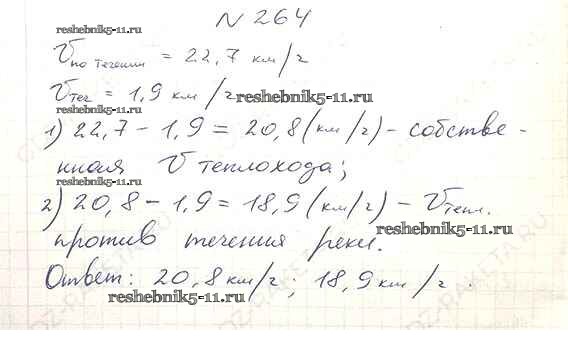 N 264
reshebnik5-11.ru
V по течении = 22,7 км/г
V теч = 1,9 км/г
reshebnik5-11.ru
reshebnik5-11.ru
1) 22,7 - 1,9 = 20,8 (км/г) - собстве-
нная V теплохода;
reshebnik5-11.ru
2) 20,8 - 1,9 = 18,9 (км/г) - V тепл.
reshebnik5-11.ru
против течения реки.
Ответ: 20,8 км/г; 18,9 км/г.
reshebnik5-11.ru